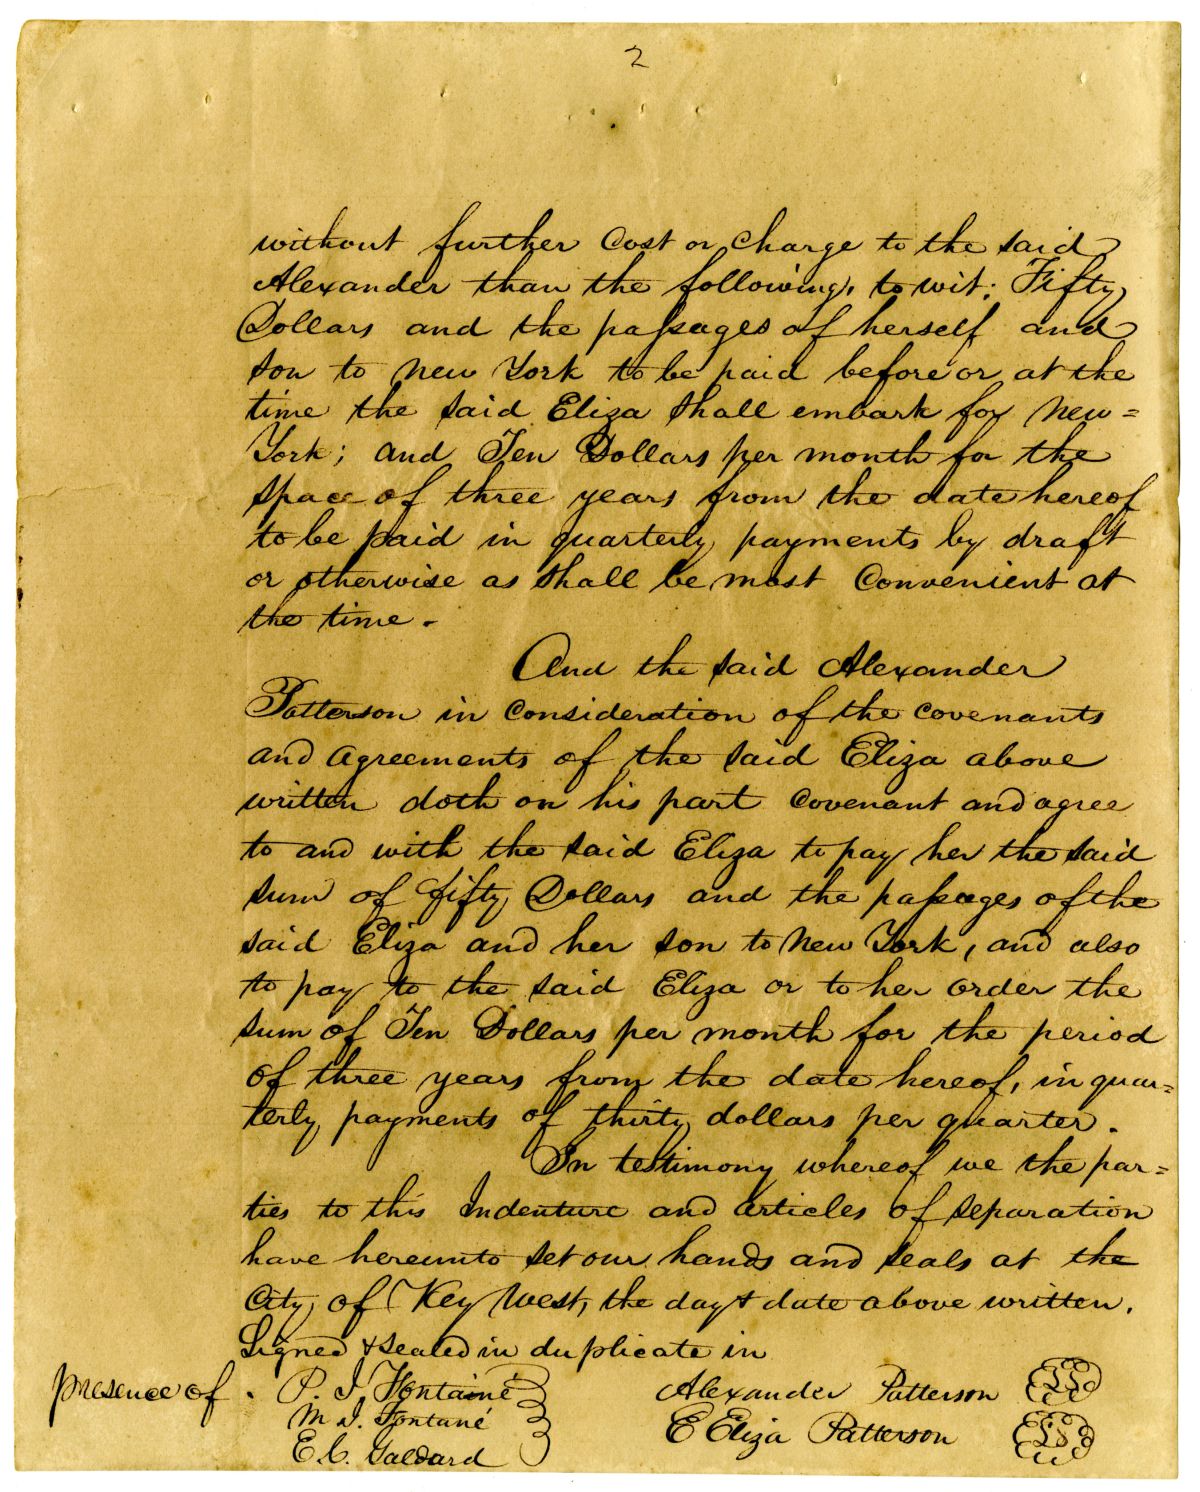 2
without further Cost or Charge to the said
Alexander than the following, to wit: Fifty
Dollars and the passages of herself and
son to New York to be paid before or at the
time the said Eliza shall embark for New=
York; and Ten Dollars per month for the
space of three years from the date hereof
to be paid in quarterly payments by draft
or otherwise as shall be most Convenient at
the time.
And the said Alexander
Patterson in Consideration of the Covenants
and Agreements of the said Eliza above
written doth on his part Covenant and agree
to and with the said Eliza to pay her the said
sum of fifty Dollars and the passages of the
said Eliza and her son to New York, and also
to pay to the said Eliza or to her order the
sum of Ten Dollars per month for the period
of three years from the date hereof, in quar=
terly payments of thirty dollars per quarter.
In testimony whereof we the par=
ties to this Indenture and articles of separation
have hereunto set our hands and seals at the
City of Key West, the day & date above written.
Signed & sealed in duplicate in
presence of. P. J. Fontainé Alexander Patterson LS
M J. Fontané E Eliza Patterson LS
E. C. Galdard